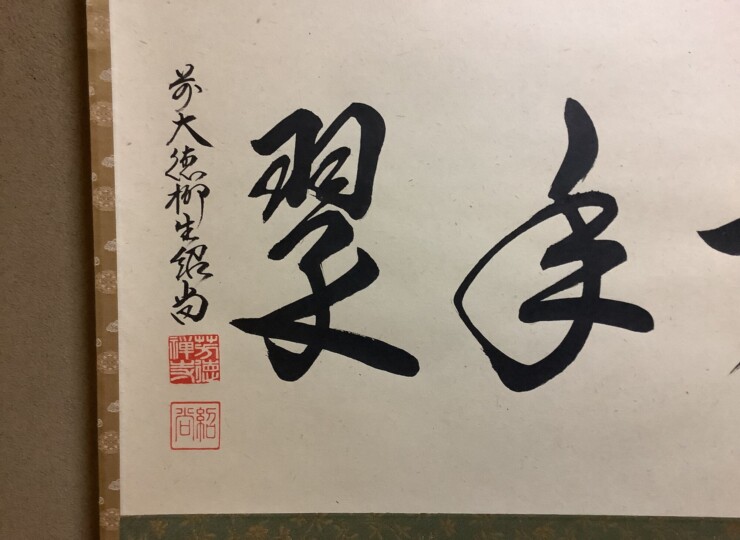 年翠
前大徳柳生紹尚
芳徳禅寺
紹尚